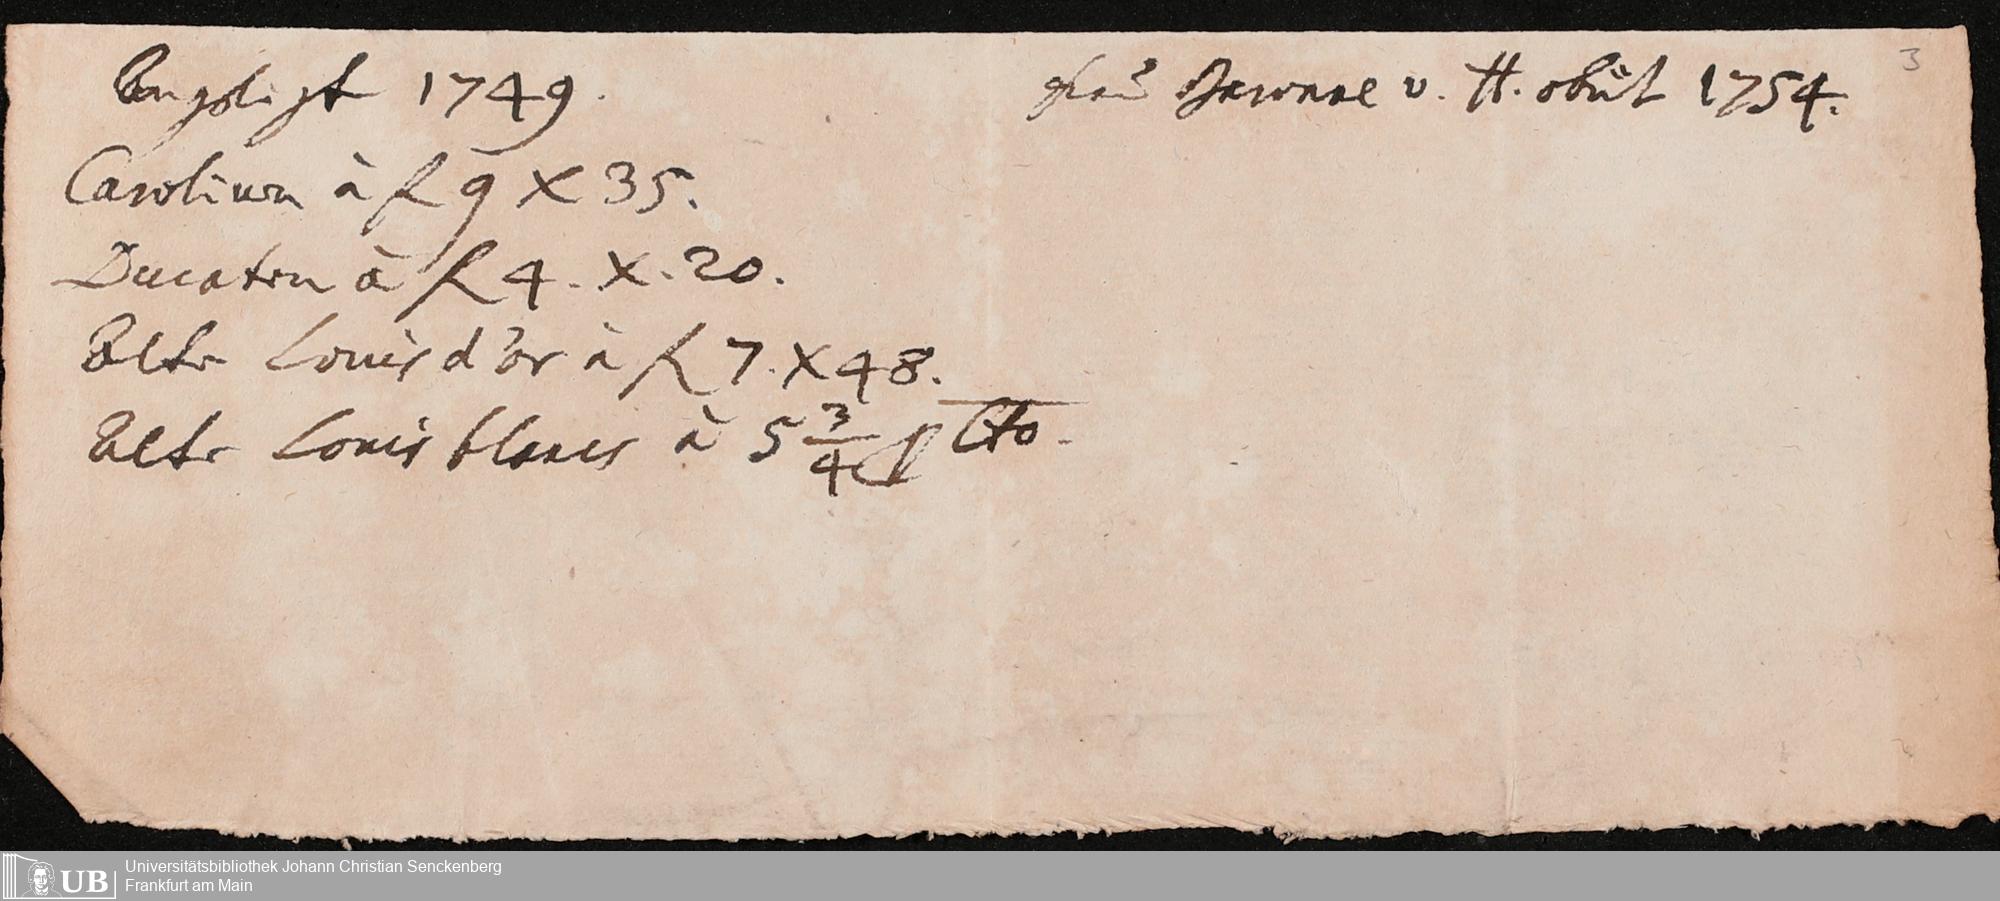 1749.
Carolinen à fl 9 X 35.
Ducaten à fl 4. X. 20.
Alte Louis d'or à fl 7. X 48.
Alte Louis blancs à 5 3/4 p Cto.
v. H. obiit 1754.
3
UB Universitätsbibliothek Johann Christian Senckenberg
Frankfurt am Main